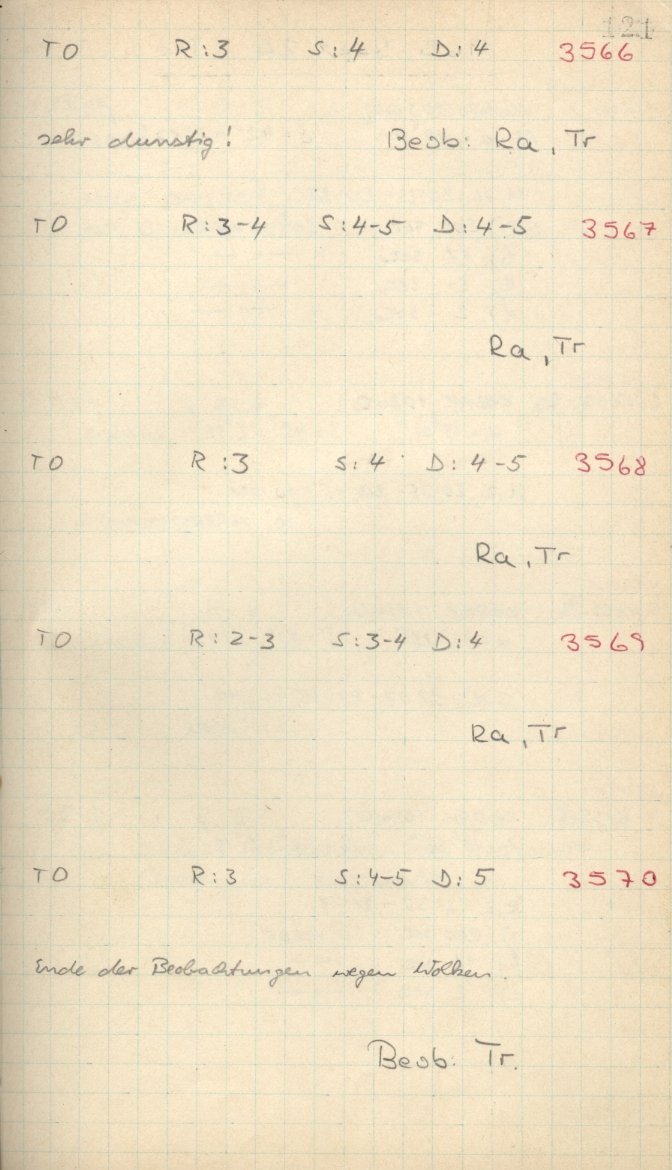 121
TO R:3 S:4 D:4 3566
sehr dunstig! Beob: Ra, Tr
TO R:3-4 S:4-5 D:4-5 3567
Ra, Tr
TO R:3 S:4 D:4-5 3568
Ra, Tr
TO R:2-3 S:3-4 D:4 3569
Ra, Tr
TO R:3 S:4-5 D:5 3570
Ende der Beobachtungen wegen Wolken.
Beob: Tr.